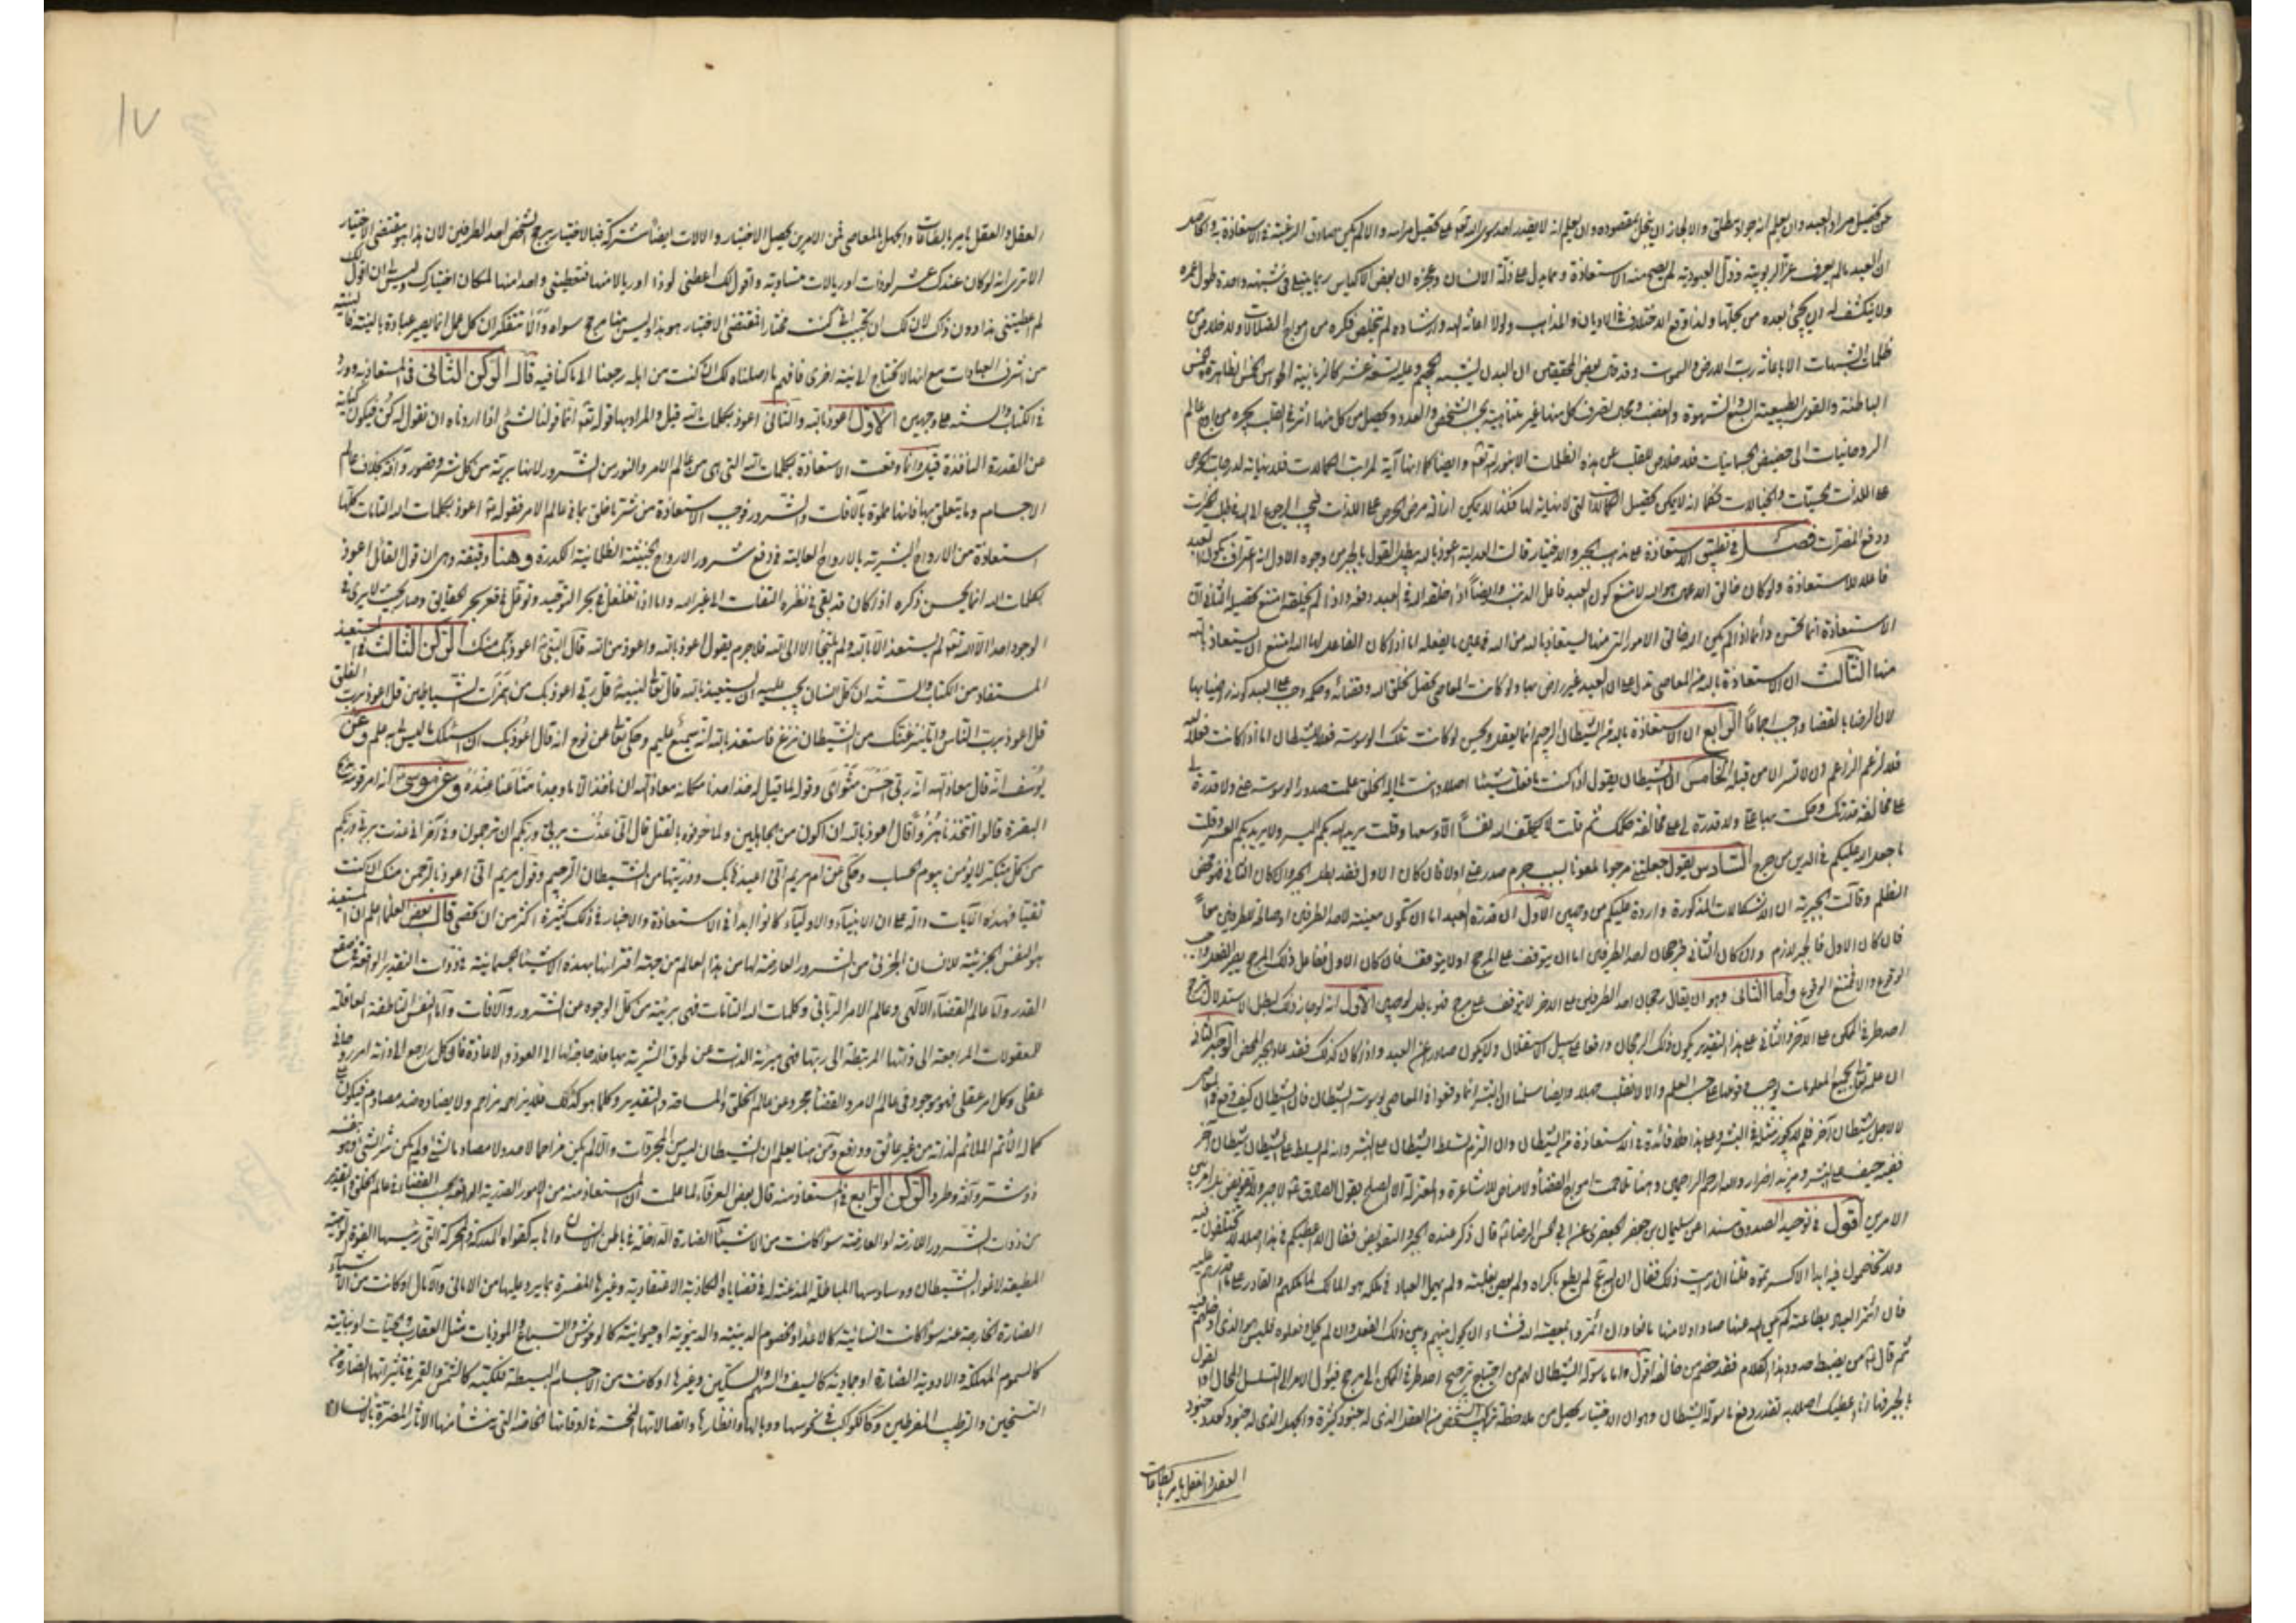 عن تحصيل مراد العبد وان يعلم انه جواد مطلق والا لجاز ان يبخل بمقصوده وان يعلم انه لا يقدر احد سوى الله تعالى على تحصيل مراده والا لم يكن صادق الرغبة في الاستعاذة به والحاصل
ان العبد ما لم يعرف عزّ الربوبية وذلّ العبودية لم يصح منه الاستعاذة ومما يدل على ذلة الانسان وعجزه ان بعض الاكياس ربما يبقى في شبهة واحدة طول عمره
ولا ينكشف له الى يجئ بعده من يحلها ولذا وقع الاختلاف في الاديان والمذاهب ولولا اعانة الله وارشاده لم يتخلص فكره من امواج الضلالات ولا خلاص من
ظلمات الشبهات الا باعانة رب الارض والسموت وقد قال بعض المحققين ان البدن يشبه الجحيم وعليه تسعة عشر كالزبانية الحواس الخمس الظاهرة والخمس
الباطنة والقوى الطبيعية السبع والشهوة والغضب ومجال تصرف كل منها غير متناهية بحسب الشخص والعدد ويحصل من كل منها اثر في القلب يجره من اوج عالم
الروحانيات الى حضيض الجسمانيات فلا خلاص للقلب عن هذه الظلمات الا بنور الله تعالى وايضا كما انها آية لمراتب الكمالات فلا نهاية لدرجات الحرص
على اللذات الحسيات والخيالات فكما انه لا يمكن تحصيل الكمالات التي لا نهاية لها فكذا لا يمكن ازالة مرض الحرص على اللذات فيجب الرجوع الى الله في طلب الخيرات
ودفع المضرات فصل في تطبيق الاستعاذة على مذهب الجبر والاختيار قالت العدلية اعوذ بالله يبطل القول بالجبر من وجوه الاول انه اعتراف بكون العبد
فاعلا للاستعاذة ولو كان خالق الاعمال هو الله لامتنع كون العبد فاعل الذنب وايضاً اذا خلقه الله في العبد دفعه واذا لم يخلقه امتنع تحصيله الثاني ان
الاستعاذة انما تحسن وانما اذا لم يكن الله خالق الامور التي منها يستعاذ بالله من الله في معنى ما يفعله اما اذا كان الفاعل لها الله امتنع ان يستعاذ بالله
منها الثالث ان الاستعاذة بالله من المعاصي تدل على ان العبد غير راض بها ولو كانت المعاصي تحصل بخلق الله وقضائه وحكمه وجب على العبد كونه راضيا بها
لان الرضا بالقضا واجب اجماعاً الرابع ان الاستعاذة بالله من الشيطان الرجيم انما يعقد ويحسن لو كانت تلك الوسوسة فعلا للشيطان اما اذا كانت فعلا لله
الخامس ان الشيطان يقول اذا كنت ما فعلت شيئا اصلا وانت يا اله الخلق علمت صدور الوسوسة عني ولا قدرة لي
على مخالفة قدرتك وحكمت بها علي ولا قدرة لي على مخالفة حكمك ثم قلت لا يكلف الله نفساً الا وسعها وقلت يريد الله بكم اليسر ولا يريد بكم العسر وقلت
ما جعل الله عليكم في الدين من حرج السادس يقول جعلتني مرجوما ملعونا بسبب جرم صدر عني اولا فان كان الاول فقد بطل الجبر وان كان الثاني فهو محض
الظلم وقالت الجبرية ان الاشكالات المذكورة واردة عليكم من وجهين الاول ان قدرة العبد اما ان تكون معينة لاحد الطرفين او صالحة للطرفين معاً
فان كان الاول فالجبر لازم وان كان الثاني فرجحان احد الطرفين اما ان يتوقف على المرجح اولا يتوقف فان كان الاول ففاعل ذلك المرجح
الوقوع والا فممتنع الوقوع واما الثاني وهو ان يقال رجحان احد الطرفين على الاخر لا يتوقف على مرجح فهو باطل لوجهين الاول انه لو جاز ذلك لبطل الاستدلال بترجح
احد طرفي الممكن على الآخر والثاني على هذا التقدير يكون ذلك الرجحان واقعا على سبيل الاستقلال ولا يكون صادرا عن العبد واذا كان كذلك فقد عاد الجبر المحض الوجه الثاني
ان علمه تعالى بجميع المعلومات
لاجل شيطان آخر فلم لا يجوز مثله في البشر وعلى هذا فلا فائدة في الاستعاذة من الشيطان وان التزم تسلط الشيطان على البشر وانه لم يسلط على الشيطان شيطان آخر
ففيه حيف على البشر ومزيد اضرار والله ارحم الراحمين وهنا تلاطمت امواج القضاء ولا مناص للاشاعرة والمعتزلة الا الصلح بقول الصادق لا جبر ولا تفويض بل امر بين
الامرين اقول في توحيد الصدوق مسندا عن سليمان بن جعفر الجعفري عن ابي الحسن الرضا قال ذكر عنده الجبر والتفويض فقال الا اعطيكم في هذا اصلا لا تختلفون فيه
ولا تخاصمون فيه احدا الا كسرتموه قلنا ان رايت ذلك فقال ان الله لم يطع باكراه ولم يعص بغلبة ولم يهمل العباد في ملكه هو المالك لما ملكهم والقادر على ما اقدرهم عليه
فان ائتمر العباد بطاعته لم يكن الله عنها صادا ولا منها مانعا وان ائتمروا بمعصيته فشاء ان يحول بينهم وبين ذلك فعل وان لم يحل وفعلوه فليس هو الذي ادخلهم فيه
ثم قال من يضبط حدود هذا الكلام فقد خصم من خالفه اقول واما ما سوله الشيطان لهم من احتياج ترجيح احد طرفي الممكن الى مرجح فيؤل الامر الى التسلسل المحال او القول
بالجبر فها انا اعطيك اصلا به تقدر دفع ما سوله الشيطان وهو ان الاختيار يحصل من ملاحظة تركب الشخص من العقل الذي له جنود كثيرة والجهل الذي له جنود كعدد جنود
العقل والعقل يامر بالطاعات
العقل والعقل يامر بالطاعات والجهل بالمعاصي فمن الامرين يحصل الاختيار والالات ايضا مشتركة فبالاختيار يرجح الشخص احد الطرفين لان هذا هو مقتضى الاختيار
الا ترى انه لو كان عندك عشر لوذات او ريالات متساوية واقول لك اعطني لوذا او ريالا منها فتعطيني واحدا منها لمكان اختيارك وليس لي ان اقول لك
لم اعطيتني هذا دون ذاك لان لك ان تجيب اني كنت مختارا فمقتضى الاختيار هو هذا وليس هنا مرجح سواه والا تتفكر ان كل عمل انما يصير عبادة بالنية فالنية
من اشرف العبادات مع انها لا تحتاج الى نية اخرى فافهم ما اصلناه لك ان كنت من اهله رجعنا الى ما كنا فيه قال الركن الثاني في المستعاذ به وورد
في الكتاب والسنة على وجهين الاول اعوذ بالله والثاني اعوذ بكلمات الله قيل والمراد بها قوله تعالى انما قولنا لشئ اذا اردناه ان نقول له كن فيكون كناية
عن القدرة النافذة قيل وانما وقعت الاستعاذة بكلمات الله التي هي من عالم الامر والنور من الشرور لانها بريئة من كل شر وقصور وآفة بخلاف عالم
الاجسام وما يتعلق بها فانها مملوة بالآفات والشرور فوجب الاستعاذة من شر ما خلق بما في عالم الامر فقوله اعوذ بكلمات الله التامات كلها
استعاذة من الارواح البشرية بالارواح العالية في دفع شرور الارواح الخبيثة الظلمانية الكدرة وهنا دقيقة وهى ان قول القائل اعوذ
بكلمات الله انما يحسن ذكره اذا كان قد بقي في نظره التفات الى غير الله واما اذا تغلغل في بحر التوحيد وتوغل في قعر بحر الحقايق وصار بحيث لا يرى في
الوجود احدا الا الله تعالى لم يستعذ الا بالله ولم يلتجأ الا الى الله فلا جرم يقول اعوذ بالله واعوذ من الله قال النبي اعوذ بك منك الركن الثالث في المستعيذ
المستفاد من الكتاب والسنة ان كل انسان يجب عليه ان يستعيذ بالله قال تعالى لنبيه قل رب اعوذ بك من همزات الشياطين قل اعوذ برب الفلق
قل اعوذ برب الناس واما ينزغنك من الشيطان نزغ فاستعذ بالله انه سميع عليم وحكى تعالى عن نوح انه قال اعوذ بك ان اسئلك ما ليس لي به علم وعن
يوسف انه قال معاذ الله انه ربي احسن مثواى وقوله لما قيل له فخذ احدنا مكانه معاذ الله ان ناخذ الا من وجدنا متاعنا عنده وعن موسى انه امر قومه بذبح
البقرة قالوا أتتخذنا هزواً قال اعوذ بالله ان اكون من الجاهلين ولما خوفوه بالقتل قال اني عذت بربي وربكم ان ترجمون وفي آخر اني عذت بربي وربكم
من كل متكبر لا يؤمن بيوم الحساب وحكى عن ام مريم اني اعيذها بك وذريتها من الشيطان الرجيم وقول مريم اني اعوذ بالرحمن منك ان كنت
تقيا فهذه الآيات دالة على ان الانبياء والاولياء كانوا ابداً في الاستعاذة والاخبار في ذلك كثيرة اكثر من ان تحصى قال بعض العلماء اعلم ان المستعيذ
هو النفس الجزئية للانسان الجزئي من الشرور العارضة لها من هذا العالم من جهة اقترانها بهذه الاشياء الجسمانية ذوات التقدير الواقعة في صقع
القدر واما عالم القضاء الالهي وعالم الامر الرباني وكلمات الله التامات فهى بريئة من كل الوجوه عن الشرور والآفات واما النفس الناطقة العاقلة
للمعقولات الراجعة الى ذاتها المرتبطة الى ربها فهي مبرئة الذات عن لحوق الشر به بها فلا حاجة لها الى العوذ والاعاذة فان كل راجع الى ذاته امر روحاني
عقلي وكل امر عقلي فهو موجود في عالم الامر والقضاء مجرد عن عالم الخلق والمساحة والتقدير وكلما هو كذلك فلا يزاحمه مزاحم ولا يضاده ضد مصادم فيكون على
كماله الاتم الملائم لذاته من غير عائق ودافع ومن هنا يعلم ان الشيطان ليس من المجردات والا لم يكن مزاحما لاحد ولا مضادا لشئ ولم يكن شر الشئ وهو بنفسه
ذو شر وآفة وطرد الركن الرابع في المستعاذ منه قال بعض العرفاء لما علمت ان المستعاذ منه من الامور القدرية الواقعة بحسب القضاء في عالم الخلق والتقدير
من ذوات الشرور اللازمة او العارضة سواء كانت من الاشياء الضارة الداخلة في باطن الانسان واهابه كقواه المدركة والمحركة التي رئيسها القوة الوهمية
المطيعة لاغواء الشيطان ووساوسها الباطلة المذعنة له في قضاياه الكاذبة الاعتقادية وغيرها المضرة بما يرد عليها من الاماني والآمال او كانت من الاشياء
الضارة الخارجة عنه سواء كانت انسانية كالاعداء والخصوم الدينية والدنيوية او حيوانية كالوحوش والسباع والموذيات مثل العقارب والحيات او نباتية
كالسموم المهلكة والادوية الضارة او جمادية كالسيف والسهم والسكين وغيرها او كانت من الاجسام البسيطة فلكية كالشمس والقمر في تاثيراتها الضارة من
التسخين والترطيب المفرطين وكالكواكب في نحوسها ووبالها وانظارها واتصالاتها النحسة في اوقاتها الخاصة التي ينشأ منها الآثار المضرة بالانسان
١٧